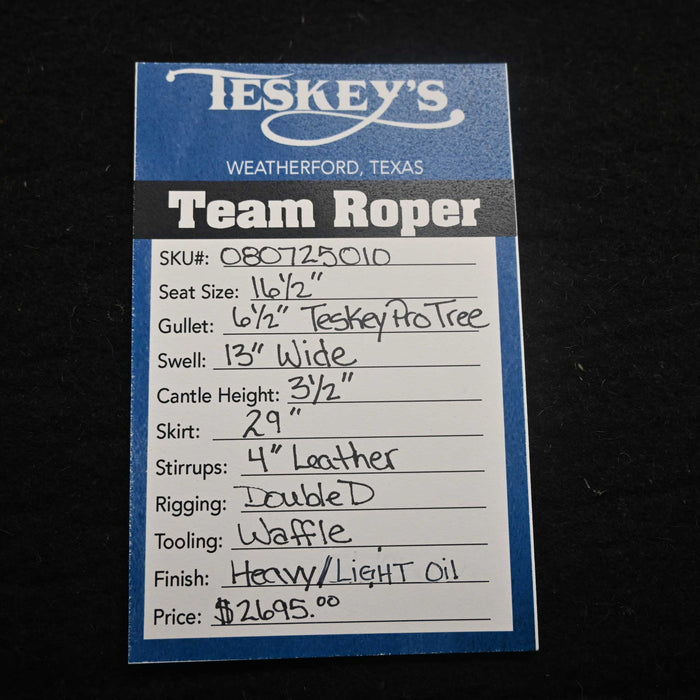 TESKEY'S
WEATHERFORD, TEXAS
Team Roper
SKU#: 080725010
Seat Size: 16 1/2"
Gullet: 6 1/2" Teskey Pro Tree
Swell: 13" Wide
Cantle Height: 3 1/2"
Skirt: 29"
Stirrups: 4" Leather
Rigging: Double D
Tooling: Waffle
Finish: Heavy/LIGHT Oil
Price: $2695.00